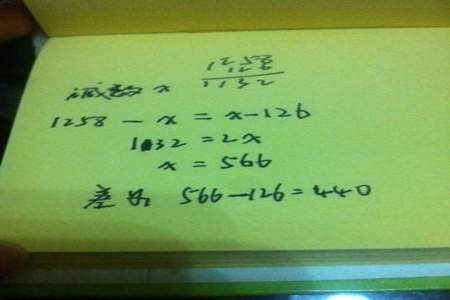 1258
126
1132
减数 x
1258 - x = x-126
1132 = 2x
x = 566
差为 566-126=440